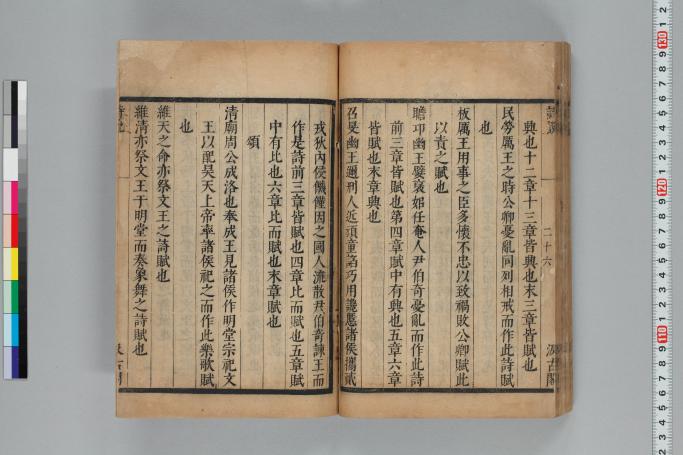 興也十二章十三章皆興也末三章皆賦也
民勞厲王之時公卿憂亂同列相戒而作此詩賦
也
板厲王用事之臣多懷不忠以致禍敗公卿賦此
以責之賦也
瞻卬幽王嬖褒姒任奄人尹伯奇憂亂而作此詩
前三章皆賦也第四章賦中有興也五章六章
皆賦也末章興也
召旻幽王邇刑人近頑童謟巧用讒慝諸侯攜貳
戎狄內侵饑饉因之國人流散尹伯奇諫王而
作是詩前三章皆賦也四章比而賦也五章賦
中有比也六章比而賦也末章賦也
頌
清廟周公成洛也奉成王見諸侯作明堂宗祀文
王以配昊天上帝率諸侯祀之而作此樂歌賦
也
維天之命亦祭文王之詩賦也
維清亦祭文王于明堂而奏象舞之詩賦也
二十六
汲古閣
130
120
110